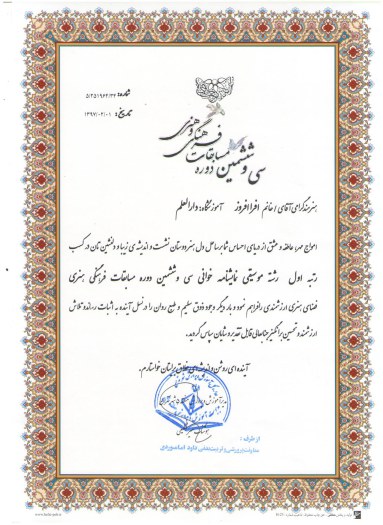 شماره: ۵/۲۵۱۹۶۴/۳۶
تاریخ: ۱۳۹۷/۰۲/۰۱
سی و ششمین دوره مسابقات فرهنگی و هنری
هنرمند گرامی آقای / خانم افرا افروز آموزشگاه: دارالعلم
امواج مهر، عاطفه و عشق از دریای احساس شما بر ساحل دل هنردوستان نشست و اندیشه ی زیبا و دلنشین تان در کسب
رتبه اول رشته موسیقی نمایشنامه خوانی سی و ششمین دوره مسابقات فرهنگی هنری
فضای هنری ارزشمندی را فراهم نمود و بار دیگر وجود ذوق سلیم و طبع روان را در نسل آینده به اثبات رساند و تلاش
ارزشمند و تحسین برانگیز جنابعالی قابل تقدیر و شایان سپاس گردید.
آینده ای روشن و اندیشه ای خلاق برایتان خواستارم.
از طرف:
معاونت پرورشی و تربیت بدنی داود اماموردی